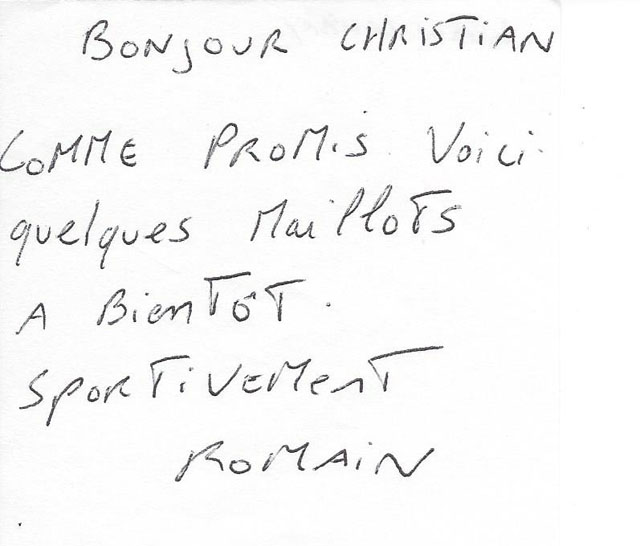 BONJOUR CHRISTIAN
COMME PROMIS VOICI
quelques MAILLOTS
A BIENTÔT.
SPORTIVEMENT
ROMAIN